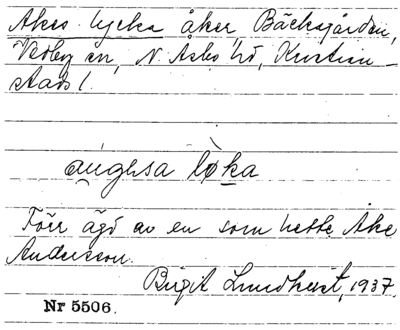 Åkes lycka åker Bäcksgården,
Vedby sn, N. Åsbo hd, Kristian-
stads l.
löka
Förr ägd av en som hette Åke
Andersson.
Birgit Lundkvist, 1937.
Nr 5506.